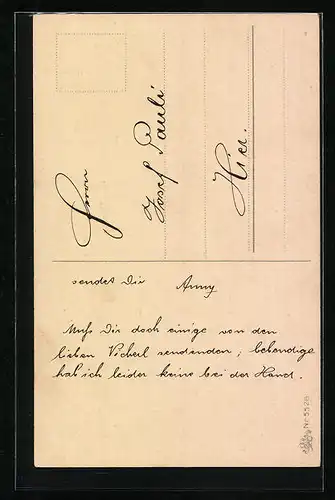 Herrn
Josef Pauli
Hier.
sendet Dir Anny
Muß Dir doch einige von den
lieben Vicherl sendenden; lebendige
hab ich leider keine bei der Hand.
Nr 5508